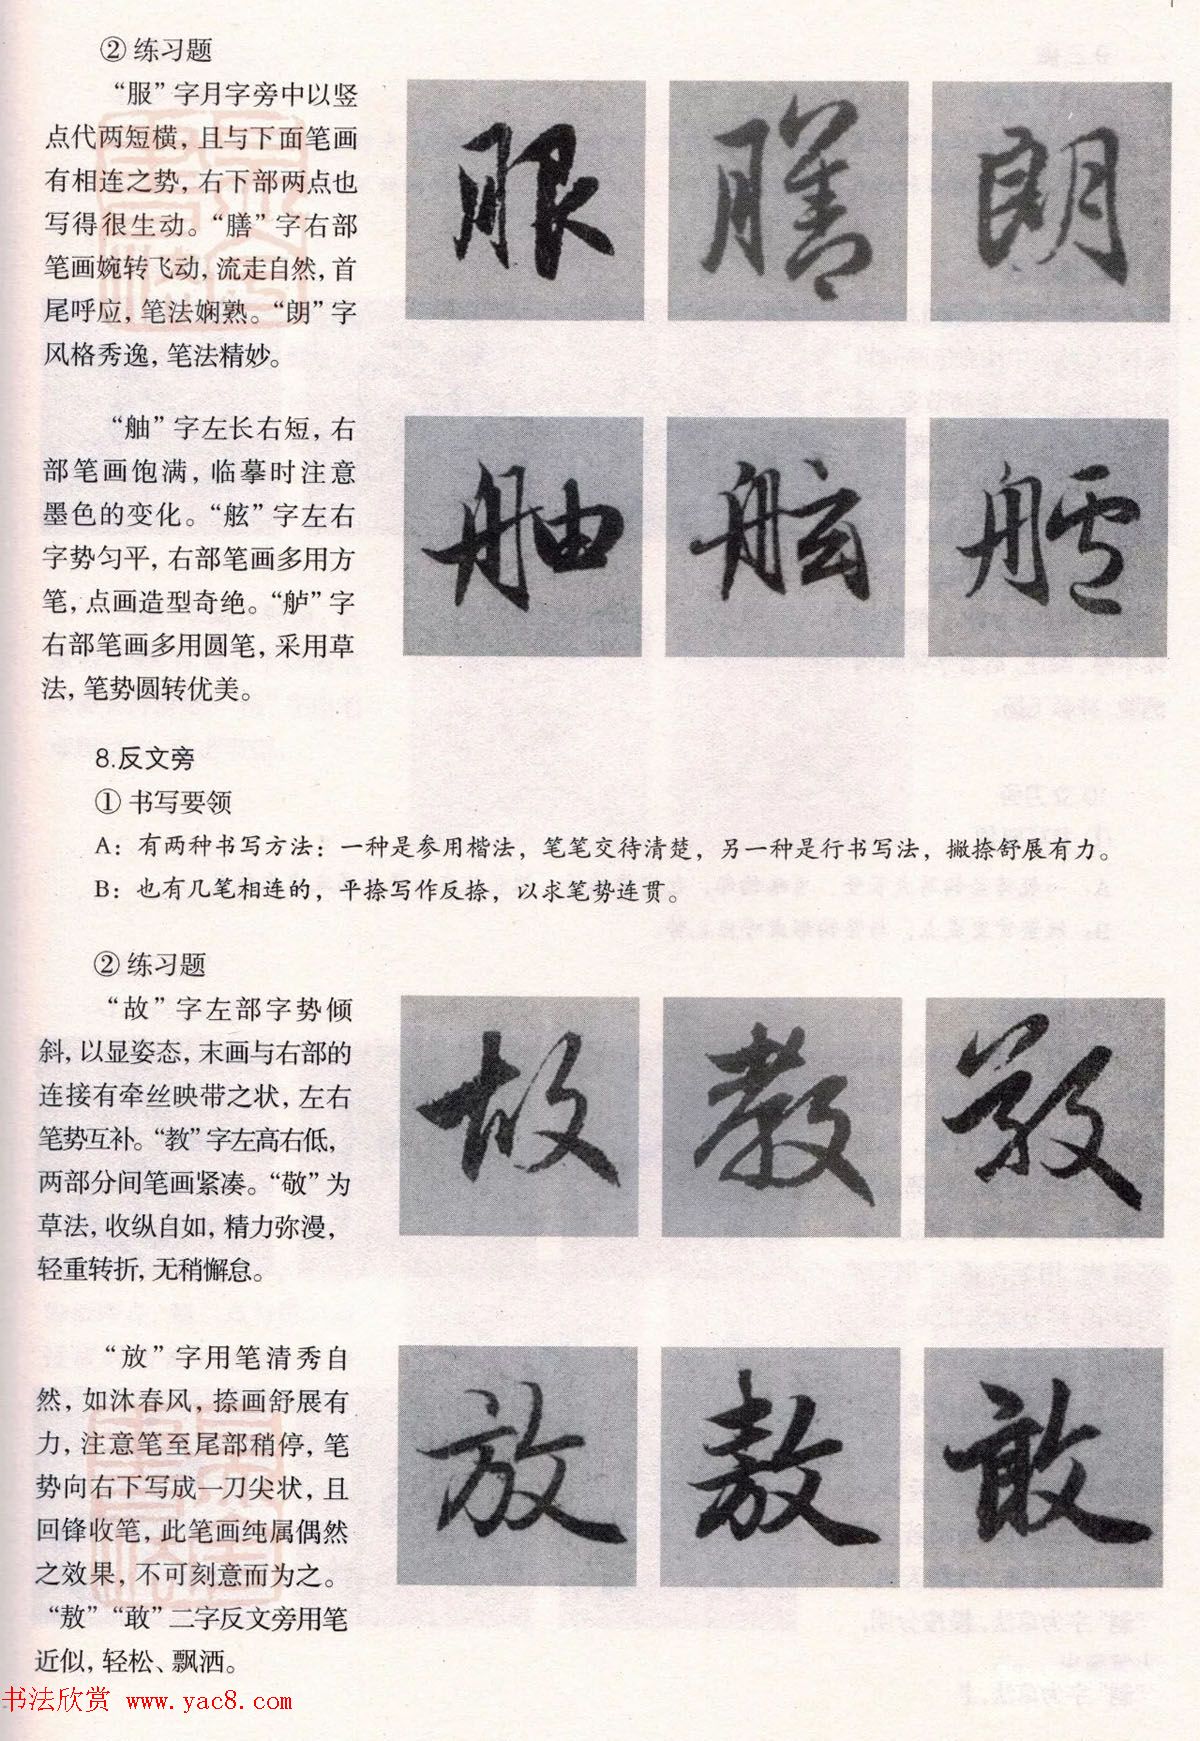 ② 练习题
“服”字月字旁中以竖
点代两短横，且与下面笔画
有相连之势，右下部两点也
写得很生动。“膳”字右部
笔画婉转飞动，流走自然，首
尾呼应，笔法娴熟。“朗”字
风格秀逸，笔法精妙。
服 膳 朗
“舳”字左长右短，右
部笔画饱满，临摹时注意
墨色的变化。“舷”字左右
字势匀平，右部笔画多用方
笔，点画造型奇绝。“舻”字
右部笔画多用圆笔，采用草
法，笔势圆转优美。
舳 舷 舻
8.反文旁
① 书写要领
A：有两种书写方法：一种是参用楷法，笔笔交待清楚，另一种是行书写法，撇捺舒展有力。
B：也有几笔相连的，平捺写作反捺，以求笔势连贯。
② 练习题
“故”字左部字势倾
斜，以显姿态，末画与右部的
连接有牵丝映带之状，左右
笔势互补。“教”字左高右低，
两部分间笔画紧凑。“敬”为
草法，收纵自如，精力弥漫，
轻重转折，无稍懈怠。
故 教 敬
“放”字用笔清秀自
然，如沐春风，捺画舒展有
力，注意笔至尾部稍停，笔
势向右下写成一刀尖状，且
回锋收笔，此笔画纯属偶然
之效果，不可刻意而为之。
“敖”“敢”二字反文旁用笔
近似，轻松、飘洒。
放 敖 敢
书法欣赏 www.yac8.com